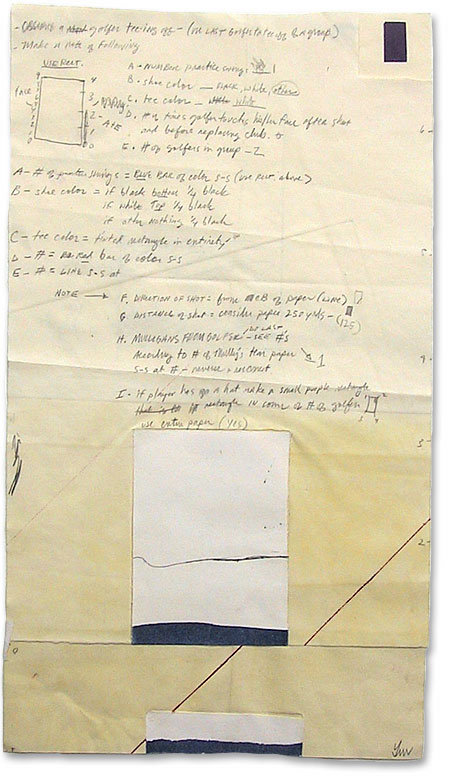 - OBSERVE a golfer teeing off - (OR LAST Golfer to tee off for a group)
- Make a note of following
USE RECT.
A - NUMBER practice swings 1
B - shoe color - BLACK, white, other
C - tee color - white
D - # of times golfer touches his/her face after shot
and before replacing club. 0
E - # of golfers in group - 2
FACE
A - # of practice swings = BLUE BAR of color s-s (use Rect. above)
B - shoe color = if black bottom 1/4 black
if white Top 1/4 black
if other nothing 1/4 black
C - tee color = rectangle in entirety
D - # = Red bar of color s-s
E - # = LINE s-s at
NOTE → F. DIRECTION OF SHOT = from of paper (LINE)
G. DISTANCE of shot = consider paper 250 yrds - (125)
H. MULLIGANS FROM GOLFER - SEE #'s
According to # of Mulligs tear paper 1
s-s at # - reverse + resect
I. If player has on a hat make a small purple rectangle
rectangle IN corner of # of golfers
use entire paper (yes)
6 -
5 -
9 -
3 -
2 -
0